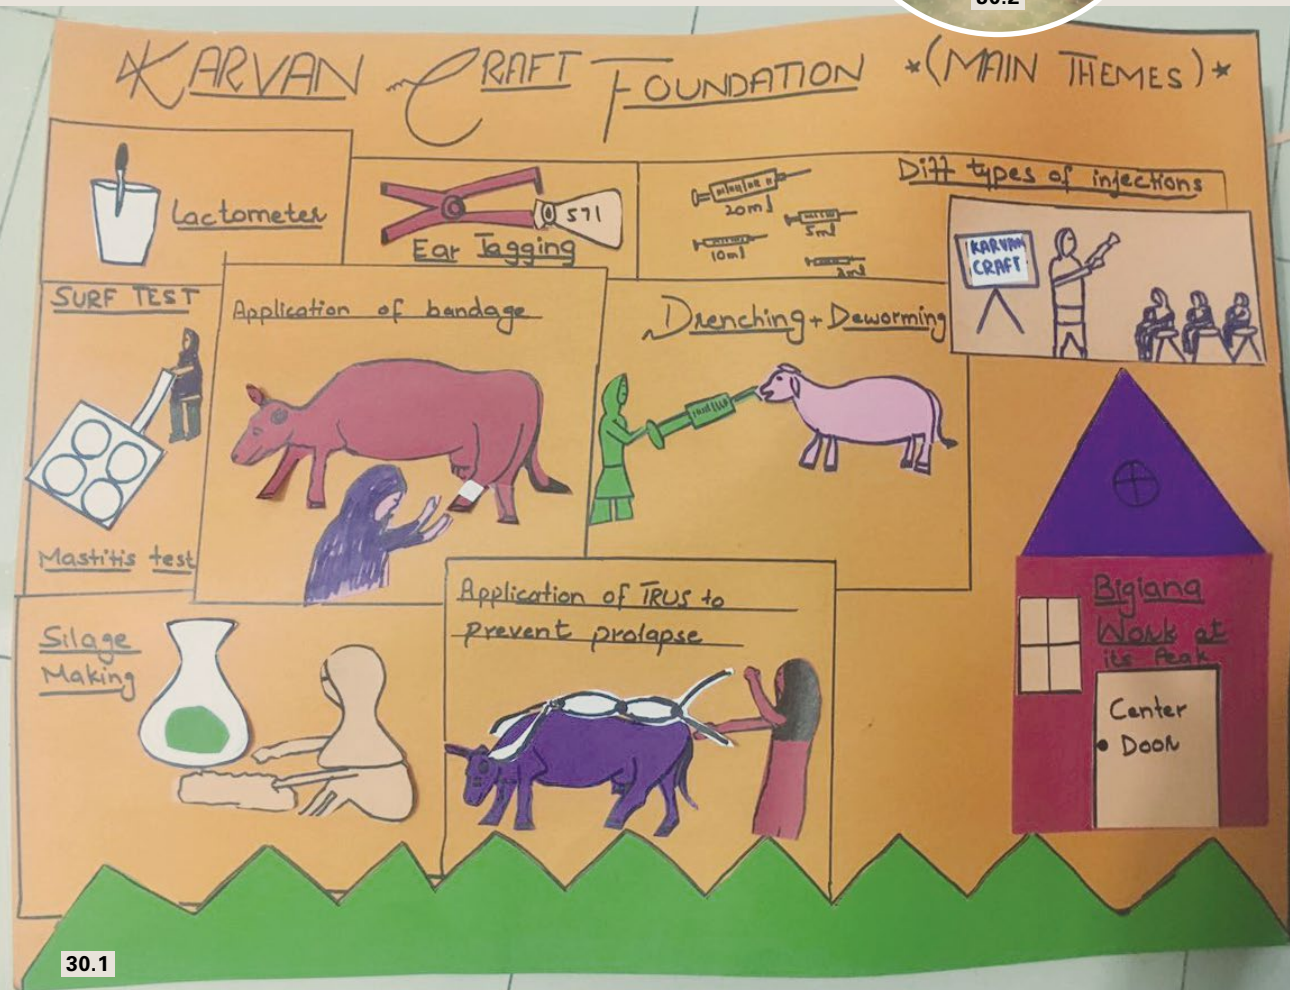 30.2
KARVAN CRAFT FOUNDATION *(MAIN THEMES)*
Lactometer
571
Ear Tagging
Diff types of injections
20ml
5ml
10ml
2ml
KARVAN
CRAFT
SURF TEST
Mastitis test
Application of bandage
Drenching + Deworming
Silage
Making
Application of TRUS to
prevent prolapse
Bigiana
Work at
its Peak
Center
Door
30.1